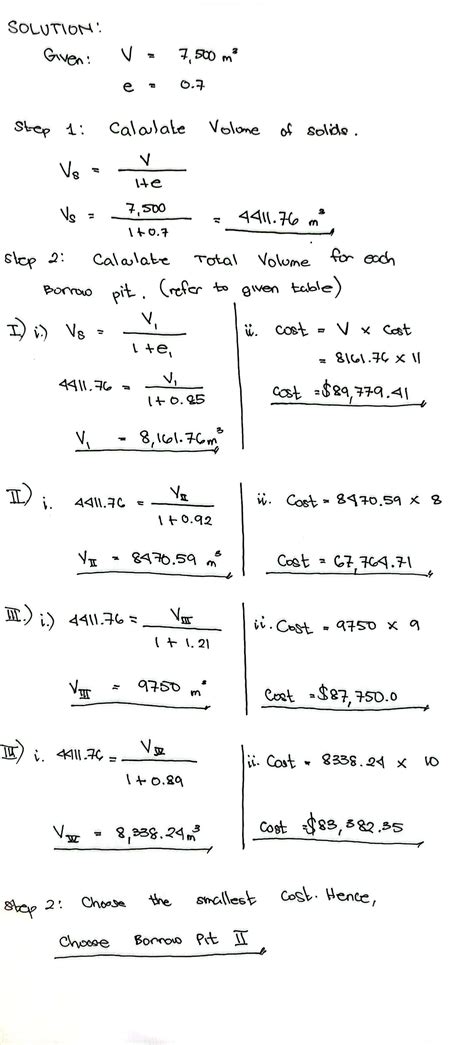 SOLUTION:
Given: V = 7,500 m³
e = 0.7
Step 1: Calculate Volume of solids.
Vs = V / 1+e
Vs = 7,500 / 1+0.7 = 4411.76 m³
Step 2: Calculate Total Volume for each
Borrow pit. (refer to given table)
I) i.) Vs = V₁ / 1+e₁
4411.76 = V₁ / 1+0.85
V₁ = 8,161.76m³
ii. Cost = V × Cost
= 8161.76 × 11
Cost = $89,779.41
II) i. 4411.76 = VII / 1+0.92
VII = 8470.59 m³
ii. Cost = 8470.59 × 8
Cost = 67,764.71
III.) i.) 4411.76 = VIII / 1+1.21
VIII = 9750 m³
ii. Cost = 9750 × 9
Cost = $87,750.0
IV) i. 4411.76 = VIV / 1+0.89
VIV = 8,338.24m³
ii. Cost = 8338.24 × 10
Cost = $83,382.35
Step 2: Choose the smallest cost. Hence,
Choose Borrow Pit II